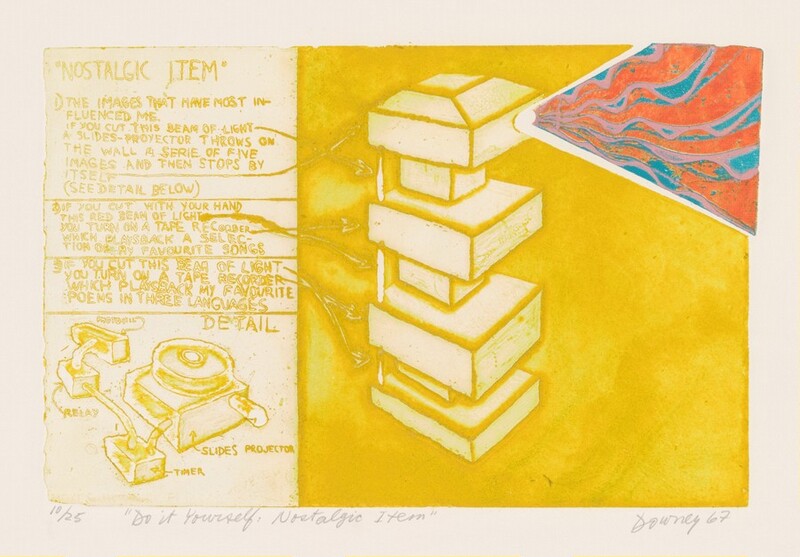 "NOSTALGIC ITEM"
1) THE IMAGES THAT HAVE MOST IN-
FLUENCED ME.
IF YOU CUT THIS BEAM OF LIGHT
A SLIDES-PROYECTOR THROWS ON
THE WALL A SERIE OF FIVE
IMAGES AND THEN STOPS BY
ITSELF
(SEE DETAIL BELOW)
2) IF YOU CUT WITH YOUR HAND
THIS RED BEAM OF LIGHT
YOU TURN ON A TAPE RECORDER
WHICH PLAYSBACK A SELEC-
TION OF MY FAVOURITE SONGS
3) IF YOU CUT THIS BEAM OF LIGHT
YOU TURN ON A TAPE RECORDER
WHICH PLAYSBACK MY FAVOURITE
POEMS IN THREE LANGUAGES
DETAIL
RELAY
SLIDES PROJECTOR
TIMER
10/25 "Do it Yourself: Nostalgic Item" Downey 67